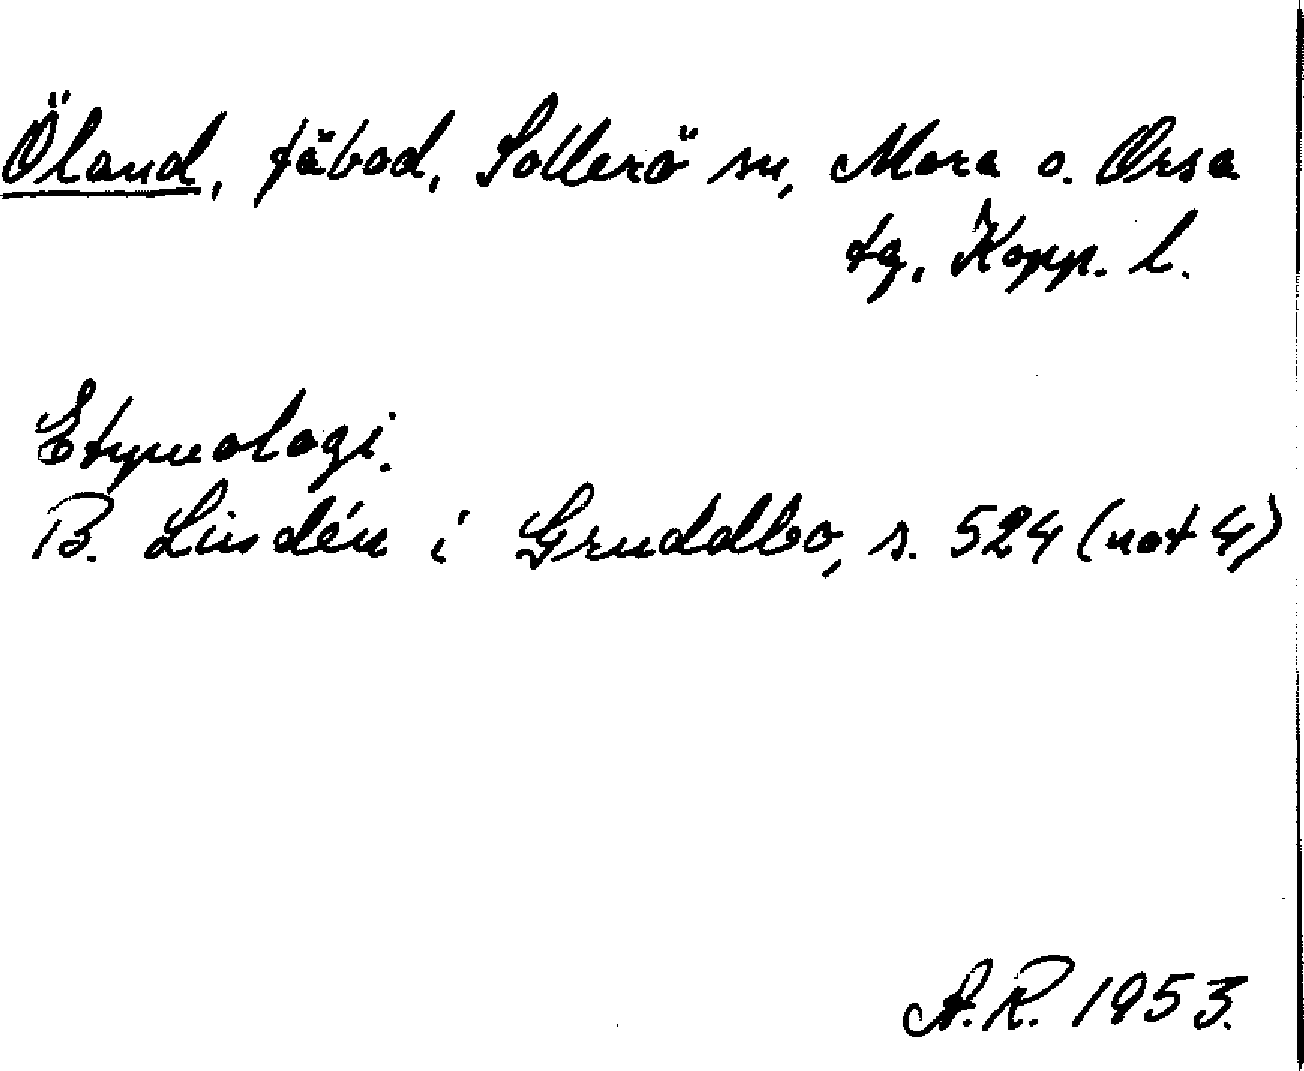 Öland, fäbod, Sollerö sn, Mora o. Orsa
tg, Kopp. l.
Etymologi.
B. Lindén i Gruddbo, s. 524 (not 4)
A.R. 1953.